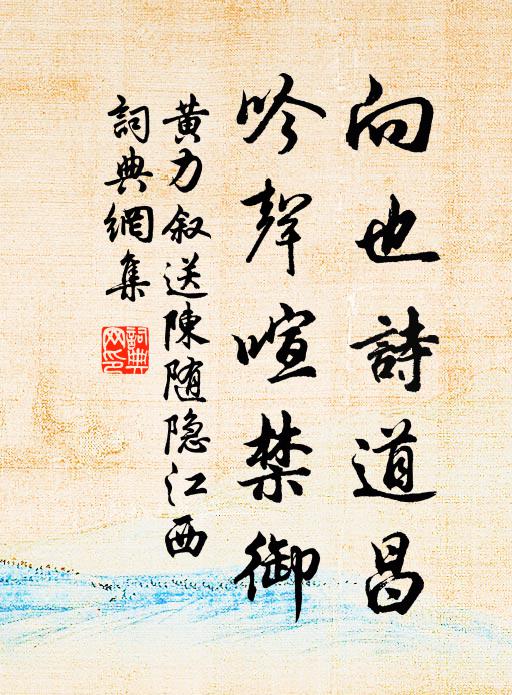 向也詩道昌
吟聲喧禁御
黄力叙送陳随隐江西
詞典網集
詞典網印